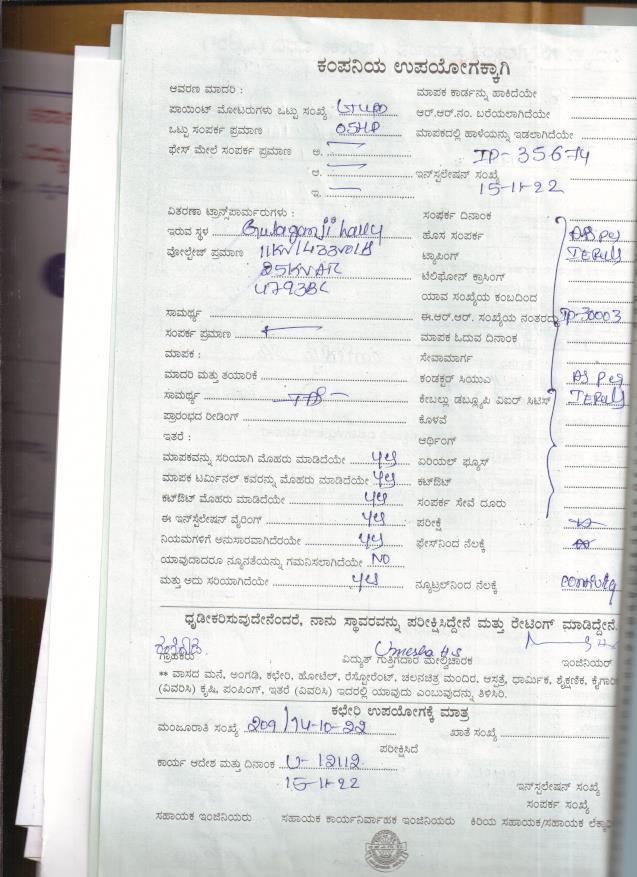 ಕಂಪನಿಯ ಉಪಯೋಗಕ್ಕಾಗಿ
ಆವರಣ ಮಾದರಿ : ಮಾಪಕ ಕಾರ್ಡನ್ನು ಹಾಕಿದೆಯೇ
ಪಾಯಿಂಟ್ ಮೋಟರುಗಳು ಒಟ್ಟು ಸಂಖ್ಯೆ ಆರ್.ಆರ್.ನಂ. ಬರೆಯಲಾಗಿದೆಯೇ
ಒಟ್ಟು ಸಂಪರ್ಕ ಪ್ರಮಾಣ 05HP ಮಾಪಕದಲ್ಲಿ ಹಾಳೆಯನ್ನು ಇಡಲಾಗಿದೆಯೇ
ಫೇಸ್ ಮೇಲೆ ಸಂಪರ್ಕ ಪ್ರಮಾಣ ಅ. IP-35674
ಆ. ಇನ್ಸ್ಟಲೇಷನ್ ಸಂಖ್ಯೆ
ಇ. 15-11-22
ವಿತರಣಾ ಟ್ರಾನ್ಸ್‌ಪಾರ್ಮರುಗಳು : ಸಂಪರ್ಕ ದಿನಾಂಕ
ಇರುವ ಸ್ಥಳ ಹೊಸ ಸಂಪರ್ಕ As per
ವೋಲ್ಟೇಜ್ ಪ್ರಮಾಣ 11KV/433volt ಟ್ಯಾಪಿಂಗ್
25KVA ಟೆಲಿಫೋನ್ ಕ್ರಾಸಿಂಗ್
ಯಾವ ಸಂಖ್ಯೆಯ ಕಂಬದಿಂದ
ಸಾಮರ್ಥ್ಯ ಈ.ಆರ್.ಆರ್. ಸಂಖ್ಯೆಯ ನಂತರದ್ದು IP-30003
ಸಂಪರ್ಕ ಪ್ರಮಾಣ ಮಾಪಕ ಓದುವ ದಿನಾಂಕ
ಮಾಪಕ : ಸೇವಾಮಾರ್ಗ
ಮಾದರಿ ಮತ್ತು ತಯಾರಿಕೆ ಕಂಡಕ್ಟರ್ ಸಿಯುಎ As per
ಸಾಮರ್ಥ್ಯ ಕೇಬಲ್ಲು ಡಬ್ಲ್ಯೂಪಿ ವಿಐರ್ ಸಿಟಿಸ್
ಪ್ರಾರಂಭದ ರೀಡಿಂಗ್ ಕೊಳವೆ
ಇತರೆ : ಆರ್ಥಿಂಗ್
ಮಾಪಕವನ್ನು ಸರಿಯಾಗಿ ಮೊಹರು ಮಾಡಿದೆಯೇ yes ಏರಿಯಲ್ ಫ್ಯೂಸ್
ಮಾಪಕ ಟರ್ಮಿನಲ್ ಕವರನ್ನು ಮೊಹರು ಮಾಡಿದೆಯೇ yes ಕಟ್‌ಔಟ್
ಕಟ್‌ಔಟ್ ಮೊಹರು ಮಾಡಿದೆಯೇ yes ಸಂಪರ್ಕ ಸೇವೆ ದೂರು
ಈ ಇನ್ಸ್ಟಲೇಷನ್ ವೈರಿಂಗ್ yes ಪರೀಕ್ಷೆ
ನಿಯಮಗಳಿಗೆ ಅನುಸಾರವಾಗಿದೆಯೇ yes ಫೇಸ್‌ನಿಂದ ನೆಲಕ್ಕೆ
ಯಾವುದಾದರೂ ನ್ಯೂನತೆಯನ್ನು ಗಮನಿಸಲಾಗಿದೆಯೇ NO
ಮತ್ತು ಅದು ಸರಿಯಾಗಿದೆಯೇ yes ನ್ಯೂಟ್ರಲ್‌ನಿಂದ ನೆಲಕ್ಕೆ
ಧೃಡೀಕರಿಸುವುದೇನೆಂದರೆ, ನಾನು ಸ್ಥಾವರವನ್ನು ಪರೀಕ್ಷಿಸಿದ್ದೇನೆ ಮತ್ತು ರೇಟಿಂಗ್ ಮಾಡಿದ್ದೇನೆ.
Umesha H.S
ಗ್ರಾಹಕರು ವಿದ್ಯುತ್ ಗುತ್ತಿಗೆದಾರ ಮೇಲ್ವಿಚಾರಕ ಇಂಜಿನಿಯರ್
** ವಾಸದ ಮನೆ, ಅಂಗಡಿ, ಕಛೇರಿ, ಹೋಟೆಲ್, ರೆಸ್ಟೋರೆಂಟ್, ಚಲನಚಿತ್ರ ಮಂದಿರ, ಆಸ್ಪತ್ರೆ, ಧಾರ್ಮಿಕ, ಶೈಕ್ಷಣಿಕ,
(ವಿವರಿಸಿ) ಕೃಷಿ, ಪಂಪಿಂಗ್, ಇತರೆ (ವಿವರಿಸಿ) ಇದರಲ್ಲಿ ಯಾವುದು ಎಂಬುವುದನ್ನು ತಿಳಿಸಿರಿ.
ಕಛೇರಿ ಉಪಯೋಗಕ್ಕೆ ಮಾತ್ರ
ಮಂಜೂರಾತಿ ಸಂಖ್ಯೆ 209/14-10-22 ಖಾತೆ ಸಂಖ್ಯೆ
ಪರೀಕ್ಷಿಸಿದೆ
ಕಾರ್ಯ ಆದೇಶ ಮತ್ತು ದಿನಾಂಕ
15-11-22 ಇನ್ಸ್ಟಲೇಷನ್ ಸಂಖ್ಯೆ
ಸಂಪರ್ಕ ಸಂಖ್ಯೆ
ಸಹಾಯಕ ಇಂಜಿನಿಯರು ಸಹಾಯಕ ಕಾರ್ಯನಿರ್ವಾಹಕ ಇಂಜಿನಿಯರು ಕಿರಿಯ ಸಹಾಯಕ/ಸಹಾಯಕ